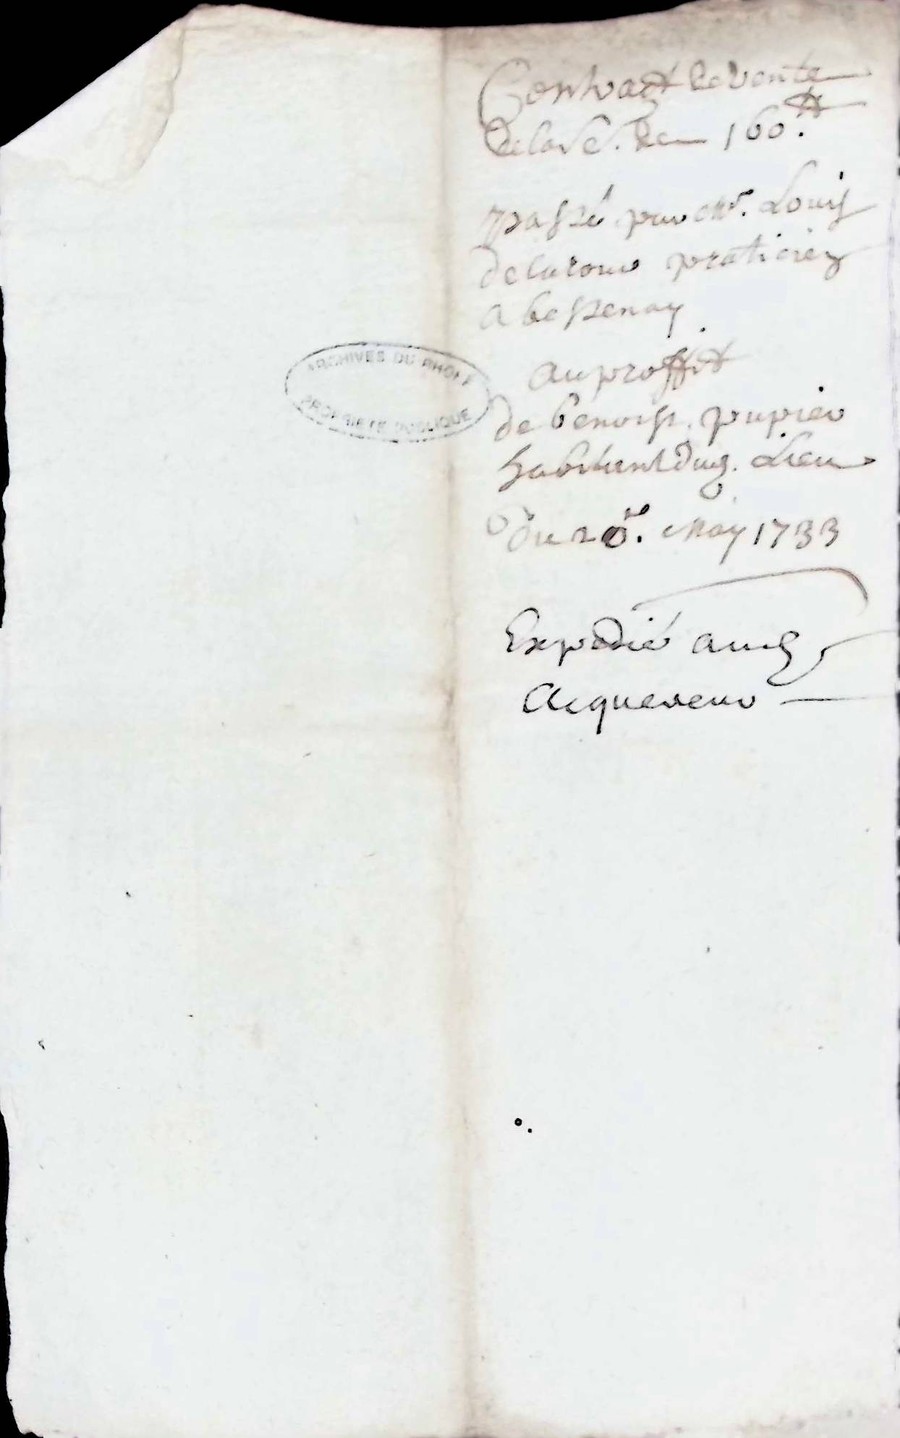 Contract de vente
de la so. de 160.tt
passé par Mr. Louis
delaroue praticien
a bessenay
au proffit
de benoist pupier
habitant dud. Lieu
du 20e. May 1733
Expedié aud.
Acquereur
ARCHIVES DU RHONE
PROPRIETE PUBLIQUE